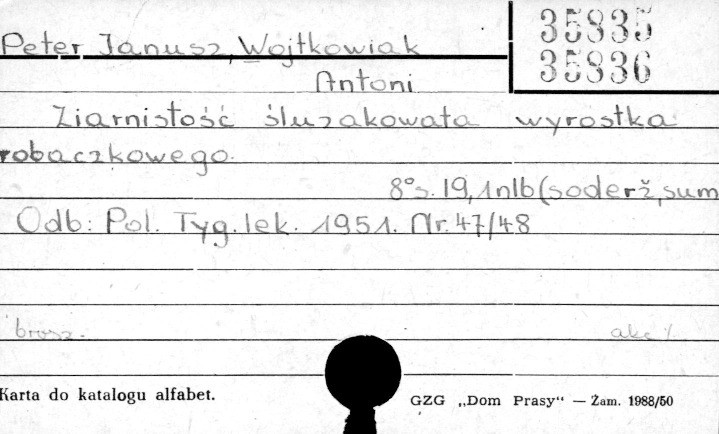 35835
35836
Peter Janusz, Wojtkowiak
Antoni
Ziarnistość śluzakowata wyrostka
robaczkowego.
8°s. 19, 1nlb (soderž, sum
Odb: Pol. Tyg. lek. 1951. Nr. 47/48
brosz.
akc
Karta do katalogu alfabet.
GZG „Dom Prasy“ — Zam. 1988/50